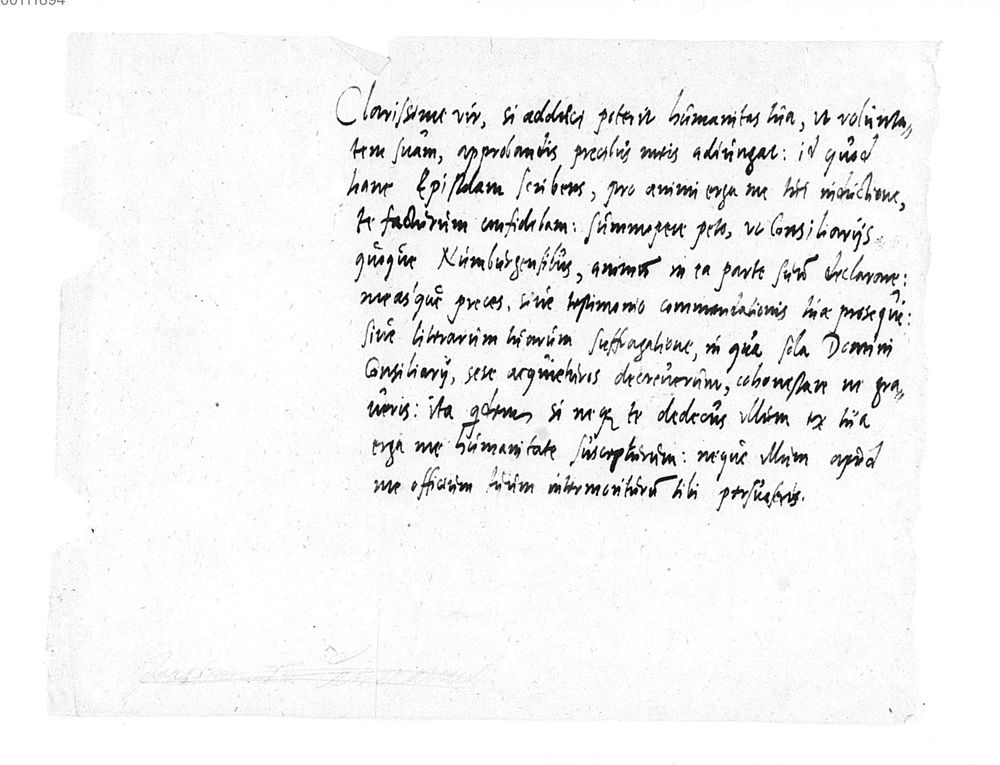 00111894
Clarissime vir, si adduci poterit humanitas tua, ut volunta„
tem suam, approbandis precibus meis adiungat: id quod
hanc Epistolam scribens, pro animi erga me tui inductione,
te facturum confidebam: summopere peto, ut Consiliarijs
quoque Numburgensibus, animū in ea parte tuū declarare:
measque preces, sive testimonio commendationis tuæ prosequi:
sive literarum tuarum suffragatione, in qua sola Domini
Consiliarij, sese acquieturos decreverunt, cohonestare ne gra„
veris: ita quidem si neq te dedecus ullum ex tua
erga me humanitate suscepturum: neque ullum apud
me officium tuum intermoriturū tibi persuaseris.